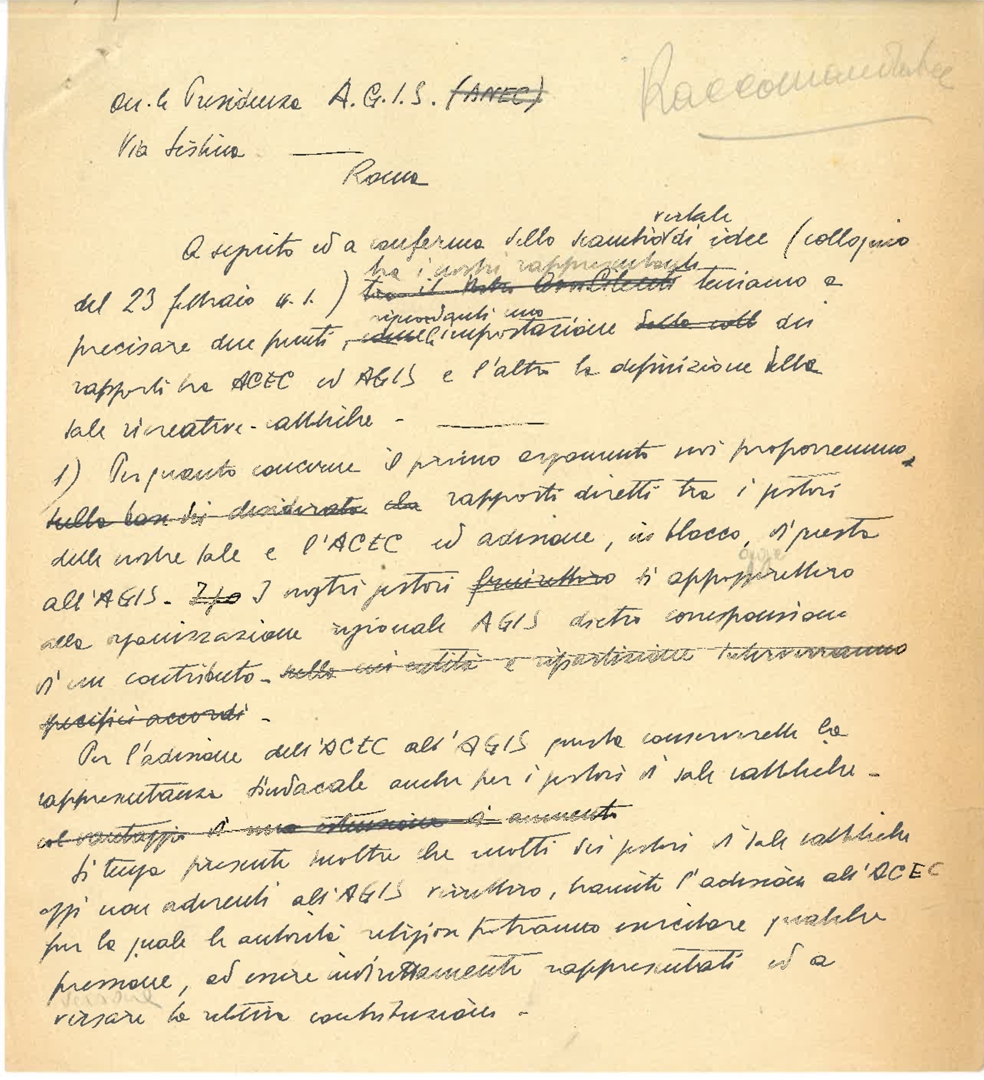 Raccomandata
On.le Presidenza A.G.I.S. (ANEC)
Via Sistina
Roma
verbale
A seguito ed a conferma dello scambio di idee (colloquio
tra i nostri rappresentanti
del 23 febbraio u.s.) tra il teniamo a
riguardanti uno
precisare due punti, l'impostazione delle dei
rapporti tra ACEC ed AGIS e l'altro la definizione della
sale ricreative cattoliche -
1) Per quanto concerne il primo argomento noi proporremmo,
sulla base dei desiderata che rapporti diretti tra i gestori
delle nostre sale e l'ACEC ed adesione, in blocco, di questa
all'AGIS - I nostri gestori fruirebbero si appoggerebbero
alla organizzazione regionale AGIS dietro corresponsione
di un contributo - sulla cui entità e ripartizione interverranno
specifici accordi -
Per l'adesione dell'ACEC all'AGIS questa conserverebbe la
rappresentanza sindacale anche per i gestori di sale cattoliche -
col vantaggio di una estensione di aumento
Si tenga presente inoltre che molti dei gestori di sale cattoliche
oggi non aderenti all'AGIS verrebbero, tramite l'adesione all'ACEC
per la quale le autorità religiose potranno esercitare qualche
pressione, ad essere indirettamente rappresentati ed a
versare la relativa contribuzione -